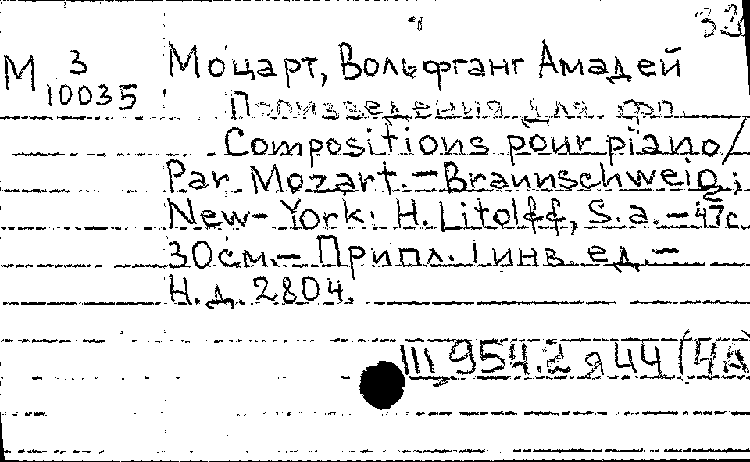 33
М 3 Моцарт, Вольфганг Амадей
10035 Произведения для фп.
Compositions pour piano/
Par Mozart.-Braunschweig;
New-York: H. Litolff, S.a.-47с.
30см.- Припл. 1 инв. ед.-
Н.д. 2804.
Ш 954.2 я 44 (4А)